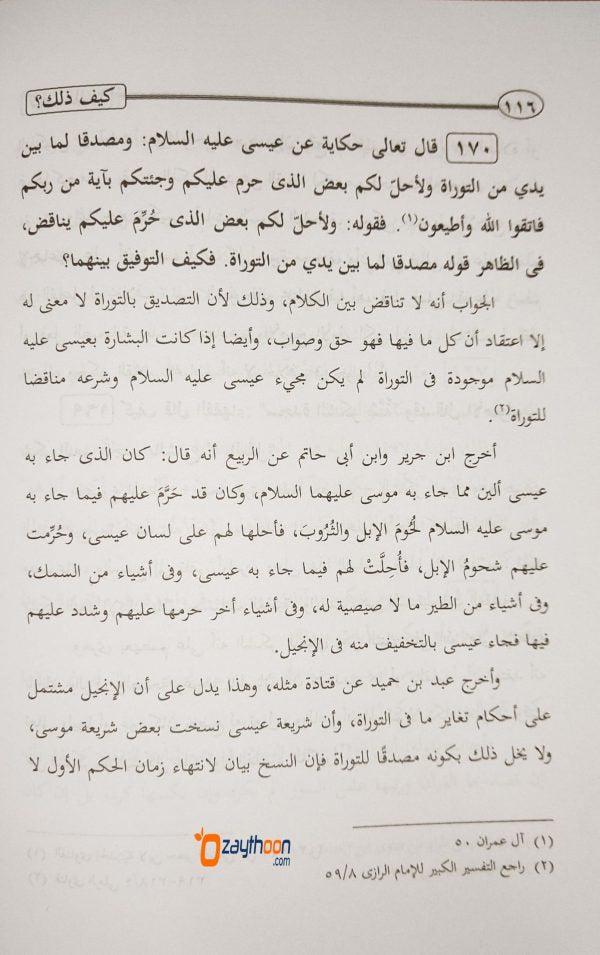 ١١٦
كيف ذلك؟
١٧٠ قال تعالى حكاية عن عيسى عليه السلام: ومصدقا لما بين
يدي من التوراة ولأحلّ لكم بعض الذى حرم عليكم وجئتكم بآية من ربكم
فاتقوا الله وأطيعون(١). فقوله: ولأحلّ لكم بعض الذى حُرِّمَ عليكم يناقض،
فى الظاهر قوله مصدقا لما بين يدي من التوراة. فكيف التوفيق بينهما؟
الجواب أنه لا تناقض بين الكلام، وذلك لأن التصديق بالتوراة لا معنى له
إلا اعتقاد أن كل ما فيها فهو حق وصواب، وأيضا إذا كانت البشارة بعيسى عليه
السلام موجودة فى التوراة لم يكن مجيء عيسى عليه السلام وشرعه مناقضا
للتوراة(٢).
أخرج ابن جرير وابن أبى حاتم عن الربيع أنه قال: كان الذى جاء به
عيسى ألين مما جاء به موسى عليهما السلام، وكان قد حَرَّمَ عليهم فيما جاء به
موسى عليه السلام لُحُومَ الإبل والثُروبَ، فأحلها لهم على لسان عيسى، وحُرِّمت
عليهم شحومُ الإبل، فأُحِلَّتْ لهم فيما جاء به عيسى، وفى أشياء من السمك،
وفى أشياء من الطير ما لا صيصية له، وفى أشياء أخر حرمها عليهم وشدد عليهم
فيها فجاء عيسى بالتخفيف منه فى الإنجيل.
وأخرج عبد بن حميد عن قتادة مثله، وهذا يدل على أن الإنجيل مشتمل
على أحكام تغاير ما فى التوراة، وأن شريعة عيسى نسخت بعض شريعة موسى،
ولا يخل ذلك بكونه مصدقًا للتوراة فإن النسخ بيان لانتهاء زمان الحكم الأول لا
(١) آل عمران ٥٠
(٢) راجع التفسير الكبير للإمام الرازى ٥٩/٨
zaythoon
.com